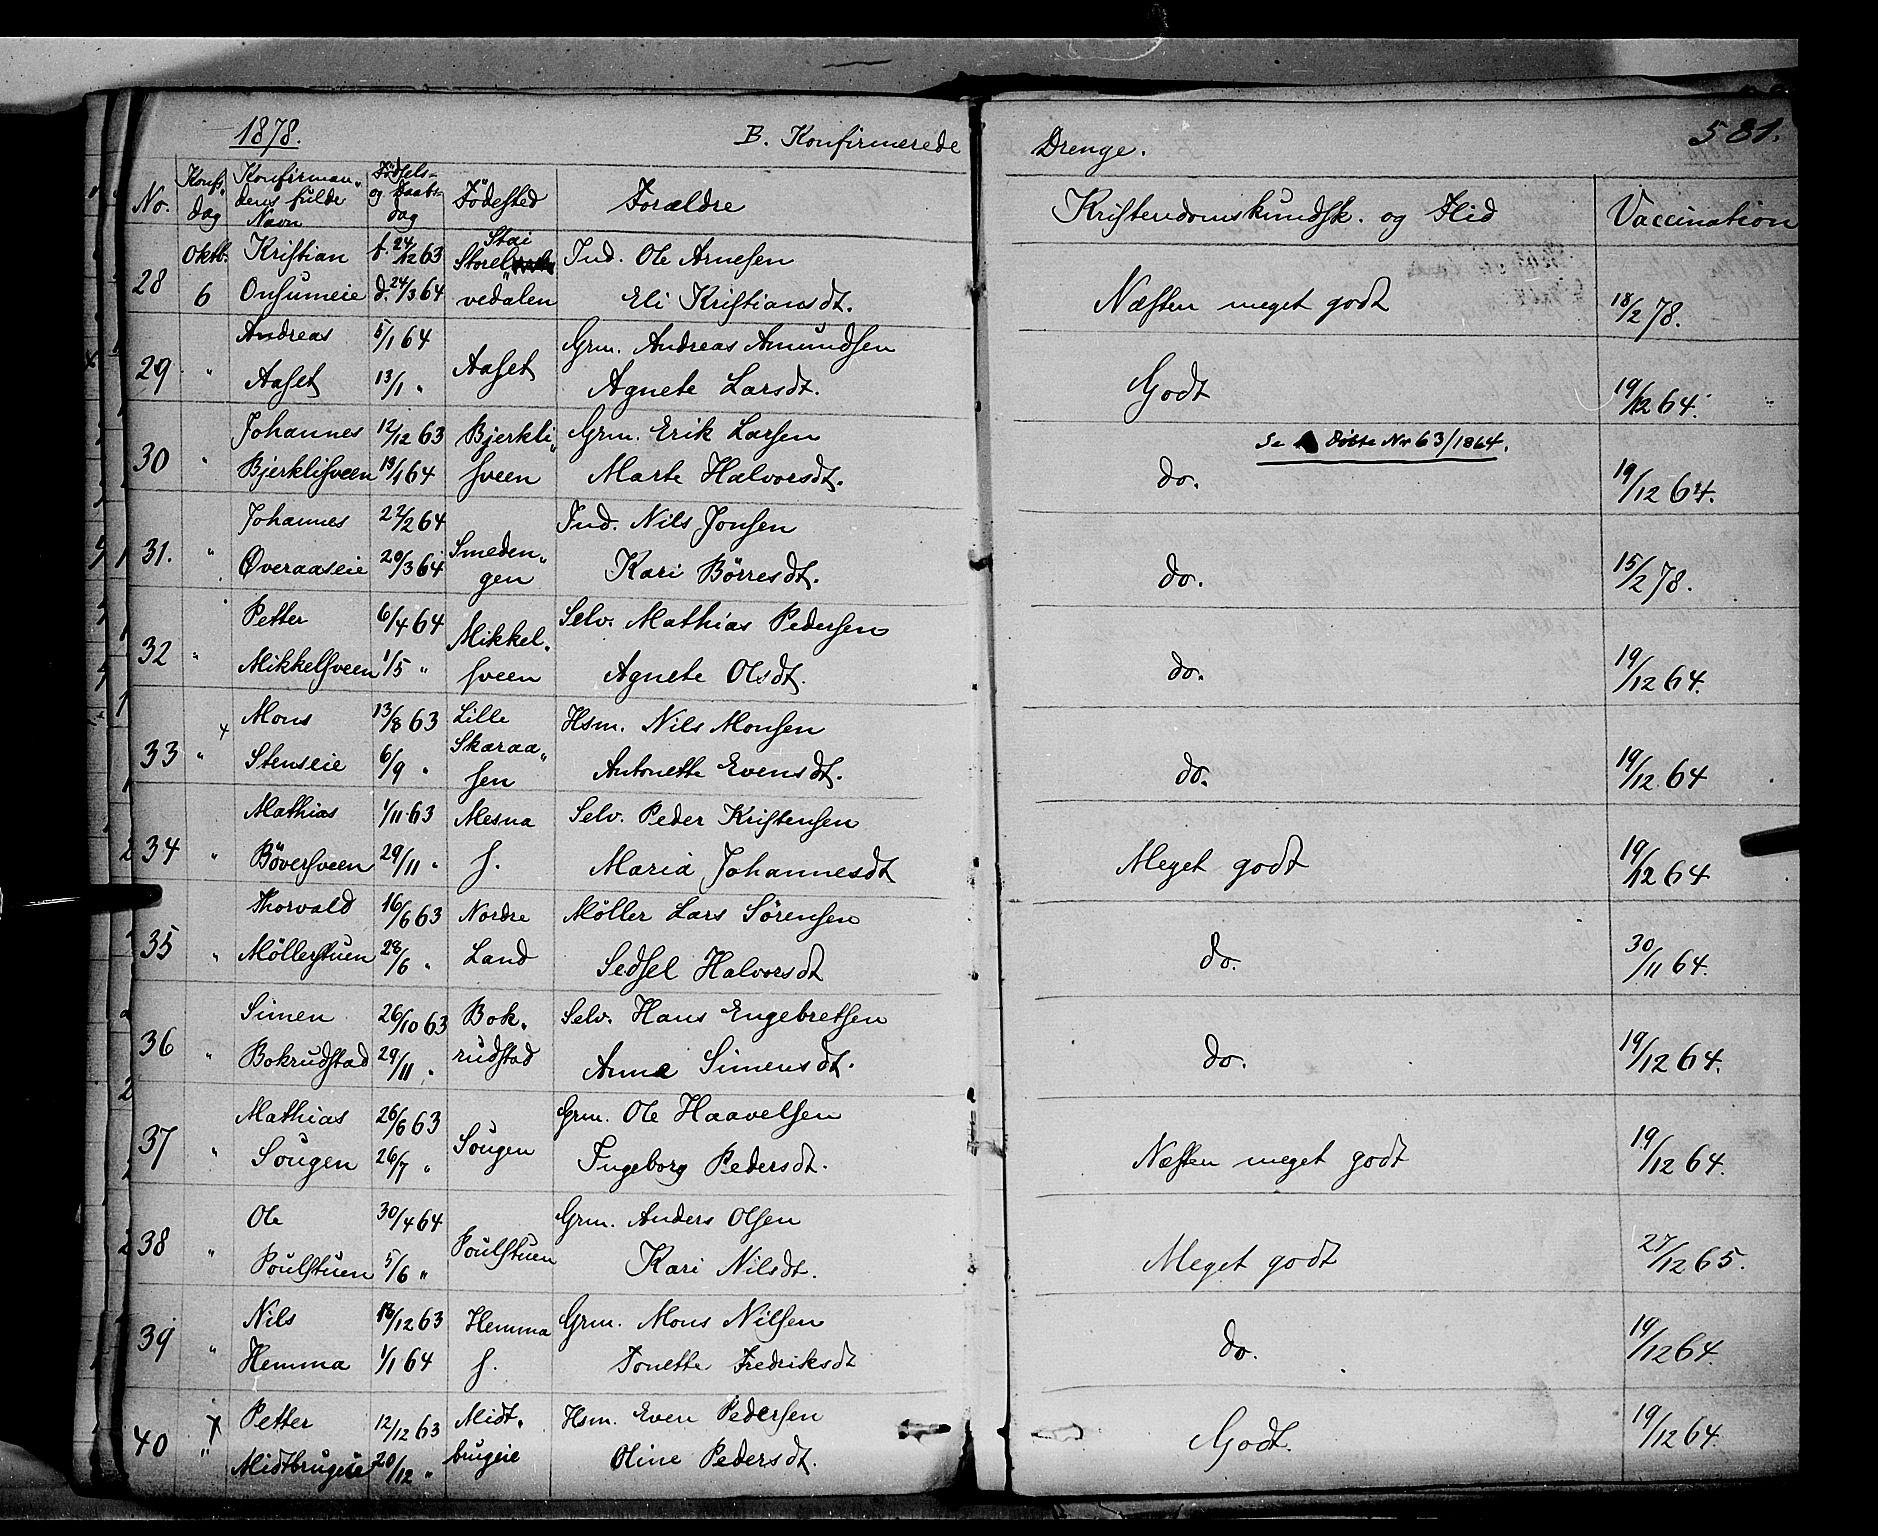 1878. B. Konfirmerede Drenge. 581.
No. Konf. dag Konfirman„dens fulde Navn Fødsels- og Daabs-dag Fødested Forældre Kristendomskundsk. og Flid Vaccination
28 Oktb. Kristian f. 24/12 63 Stai Ind. Ole Arnesen
6 Onsumeie d. 24/3 64 Storel„vedalen Eli Kristiansdt. Næsten meget godt 18/2 78.
29 „ Andreas 5/1 64 Aaset Grm. Andreas Amundsen
Aaset 13/1 „ Agnete Larsdt. Godt 19/12 64.
30 „ Johannes 12/12 63 Bjerkli„ Grm. Erik Larsen Se Døbte Nr 63/1864.
Bjerklisveen 13/1 64 sveen Marte Halvorsdt. do. 19/12 64.
31. „ Johannes 22/2 64 Smeden„ Ind. Nils Jonsen
Øveraaseie 20/3 64 gen Kari Børresdt. do. 15/2 78.
32 „ Petter 6/4 64 Mikkel. Selv. Mathias Pedersen
Mikkelsveen 1/5 „ sveen Agnete Olsdt. do. 19/12 64.
33 „ Mons 13/8 63 Lille Hsm. Nils Monsen
Stenseie 6/9 „ Skaraa„sen Antonette Evensdt. do. 19/12 64
34 „ Mathias 1/11 63 Mesna Selv. Peder Kristensen
Bøversveen 29/11 „ s. Maria Johannesdt Meget godt 19/12 64
35 „ Thorvald 16/6 63 Nordre Møller Lars Sørensen
Møllerstuen 28/6 „ Land Sedsel Halvorsdt do. 30/11 64.
36 „ Simen 26/10 63 Bok. Selv. Hans Engebretsen
Bokrudstad 29/11 „ rudstad Anne Simensdt. do. 19/12 64.
37 „ Mathias 26/6 63 Sougen Grm. Ole Haavelsen
Sougen 26/7 „ Ingeborg Pedersdt. Næsten meget godt 19/12 64.
38 „ Ole 30/4 64 Poulstuen Grm. Anders Olsen
Poulstuen 5/6 „ Kari Nilsdt. Meget godt 27/12 65.
39 „ Nils 18/12 63 Hemma Grm. Mons Nilsen
Hemma 1/1 64 s. Tonette Fredriksdt do. 19/12 64.
40 „ Petter 12/12 63 Midt. Hsm. Even Pedersen
Midtbrugeie 20/12 „ brugeie Oline Pedersdt. Godt. 19/12 64.